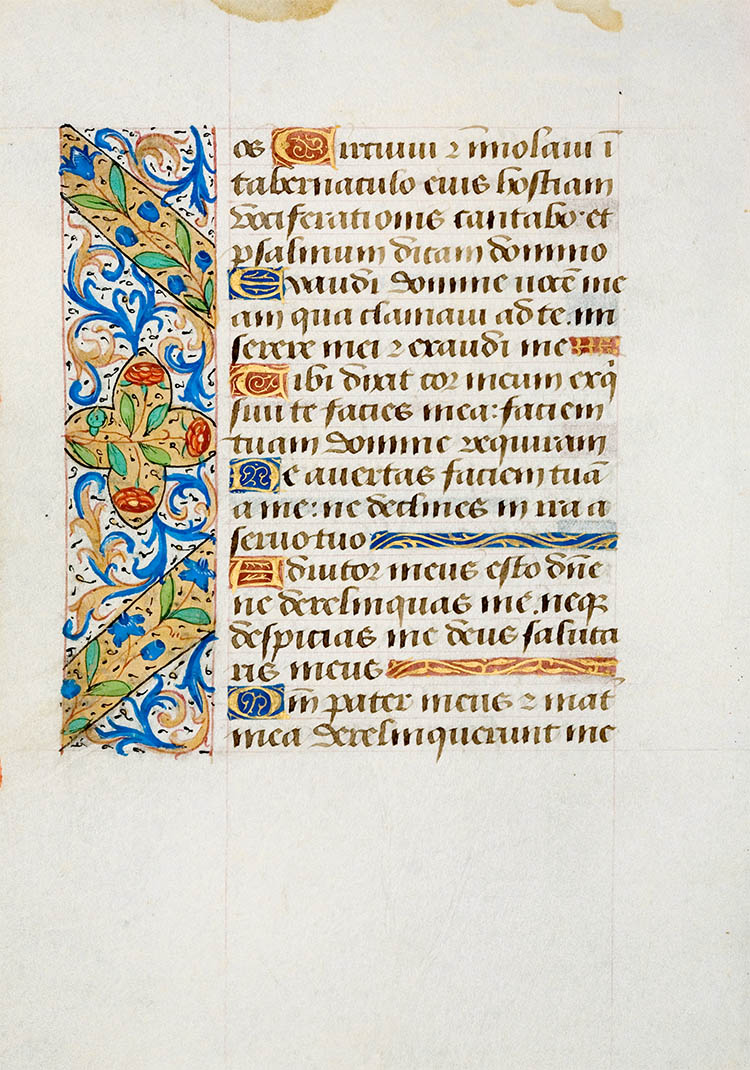 os Circuiui ⁊ im̄olaui ī
tabernaculo eius hostiam
vociferationis cantabo et
psalmum dicam domino
Exaudi domine uocē me
am qua clamaui ad te. mi
serere mei ⁊ exaudi me
Tibi dixit cor meum exq̄
siuit te facies mea: faciem
tuam domine requiram
Ne auertas faciem tuā
a me: ne declines in ira a
seruo tuo
Adiutor meus esto dn̄e
ne derelinquas me. neqȝ
despicias me deus saluta
ris meus
Qm̄ pater meus ⁊ mat̄
mea dereliquerunt me